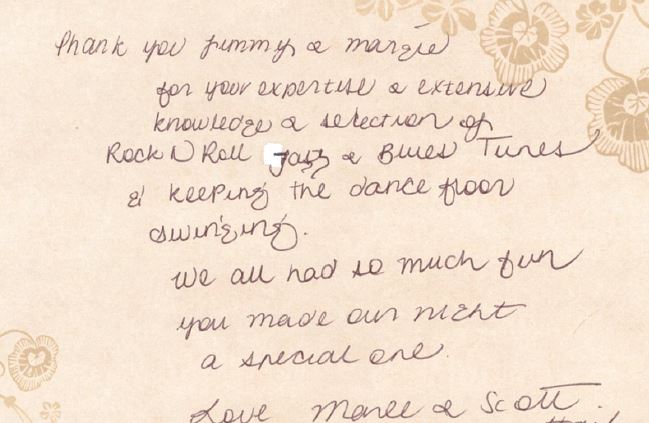 Thank you Jimmy & margie
for your expertise & extensive
knowledge & selection of
Rock N Roll Jazz & Blues Tunes
& keeping the dance floor
swinging.
we all had so much fun
you made our night
a special one.
Love Maree & Scott.